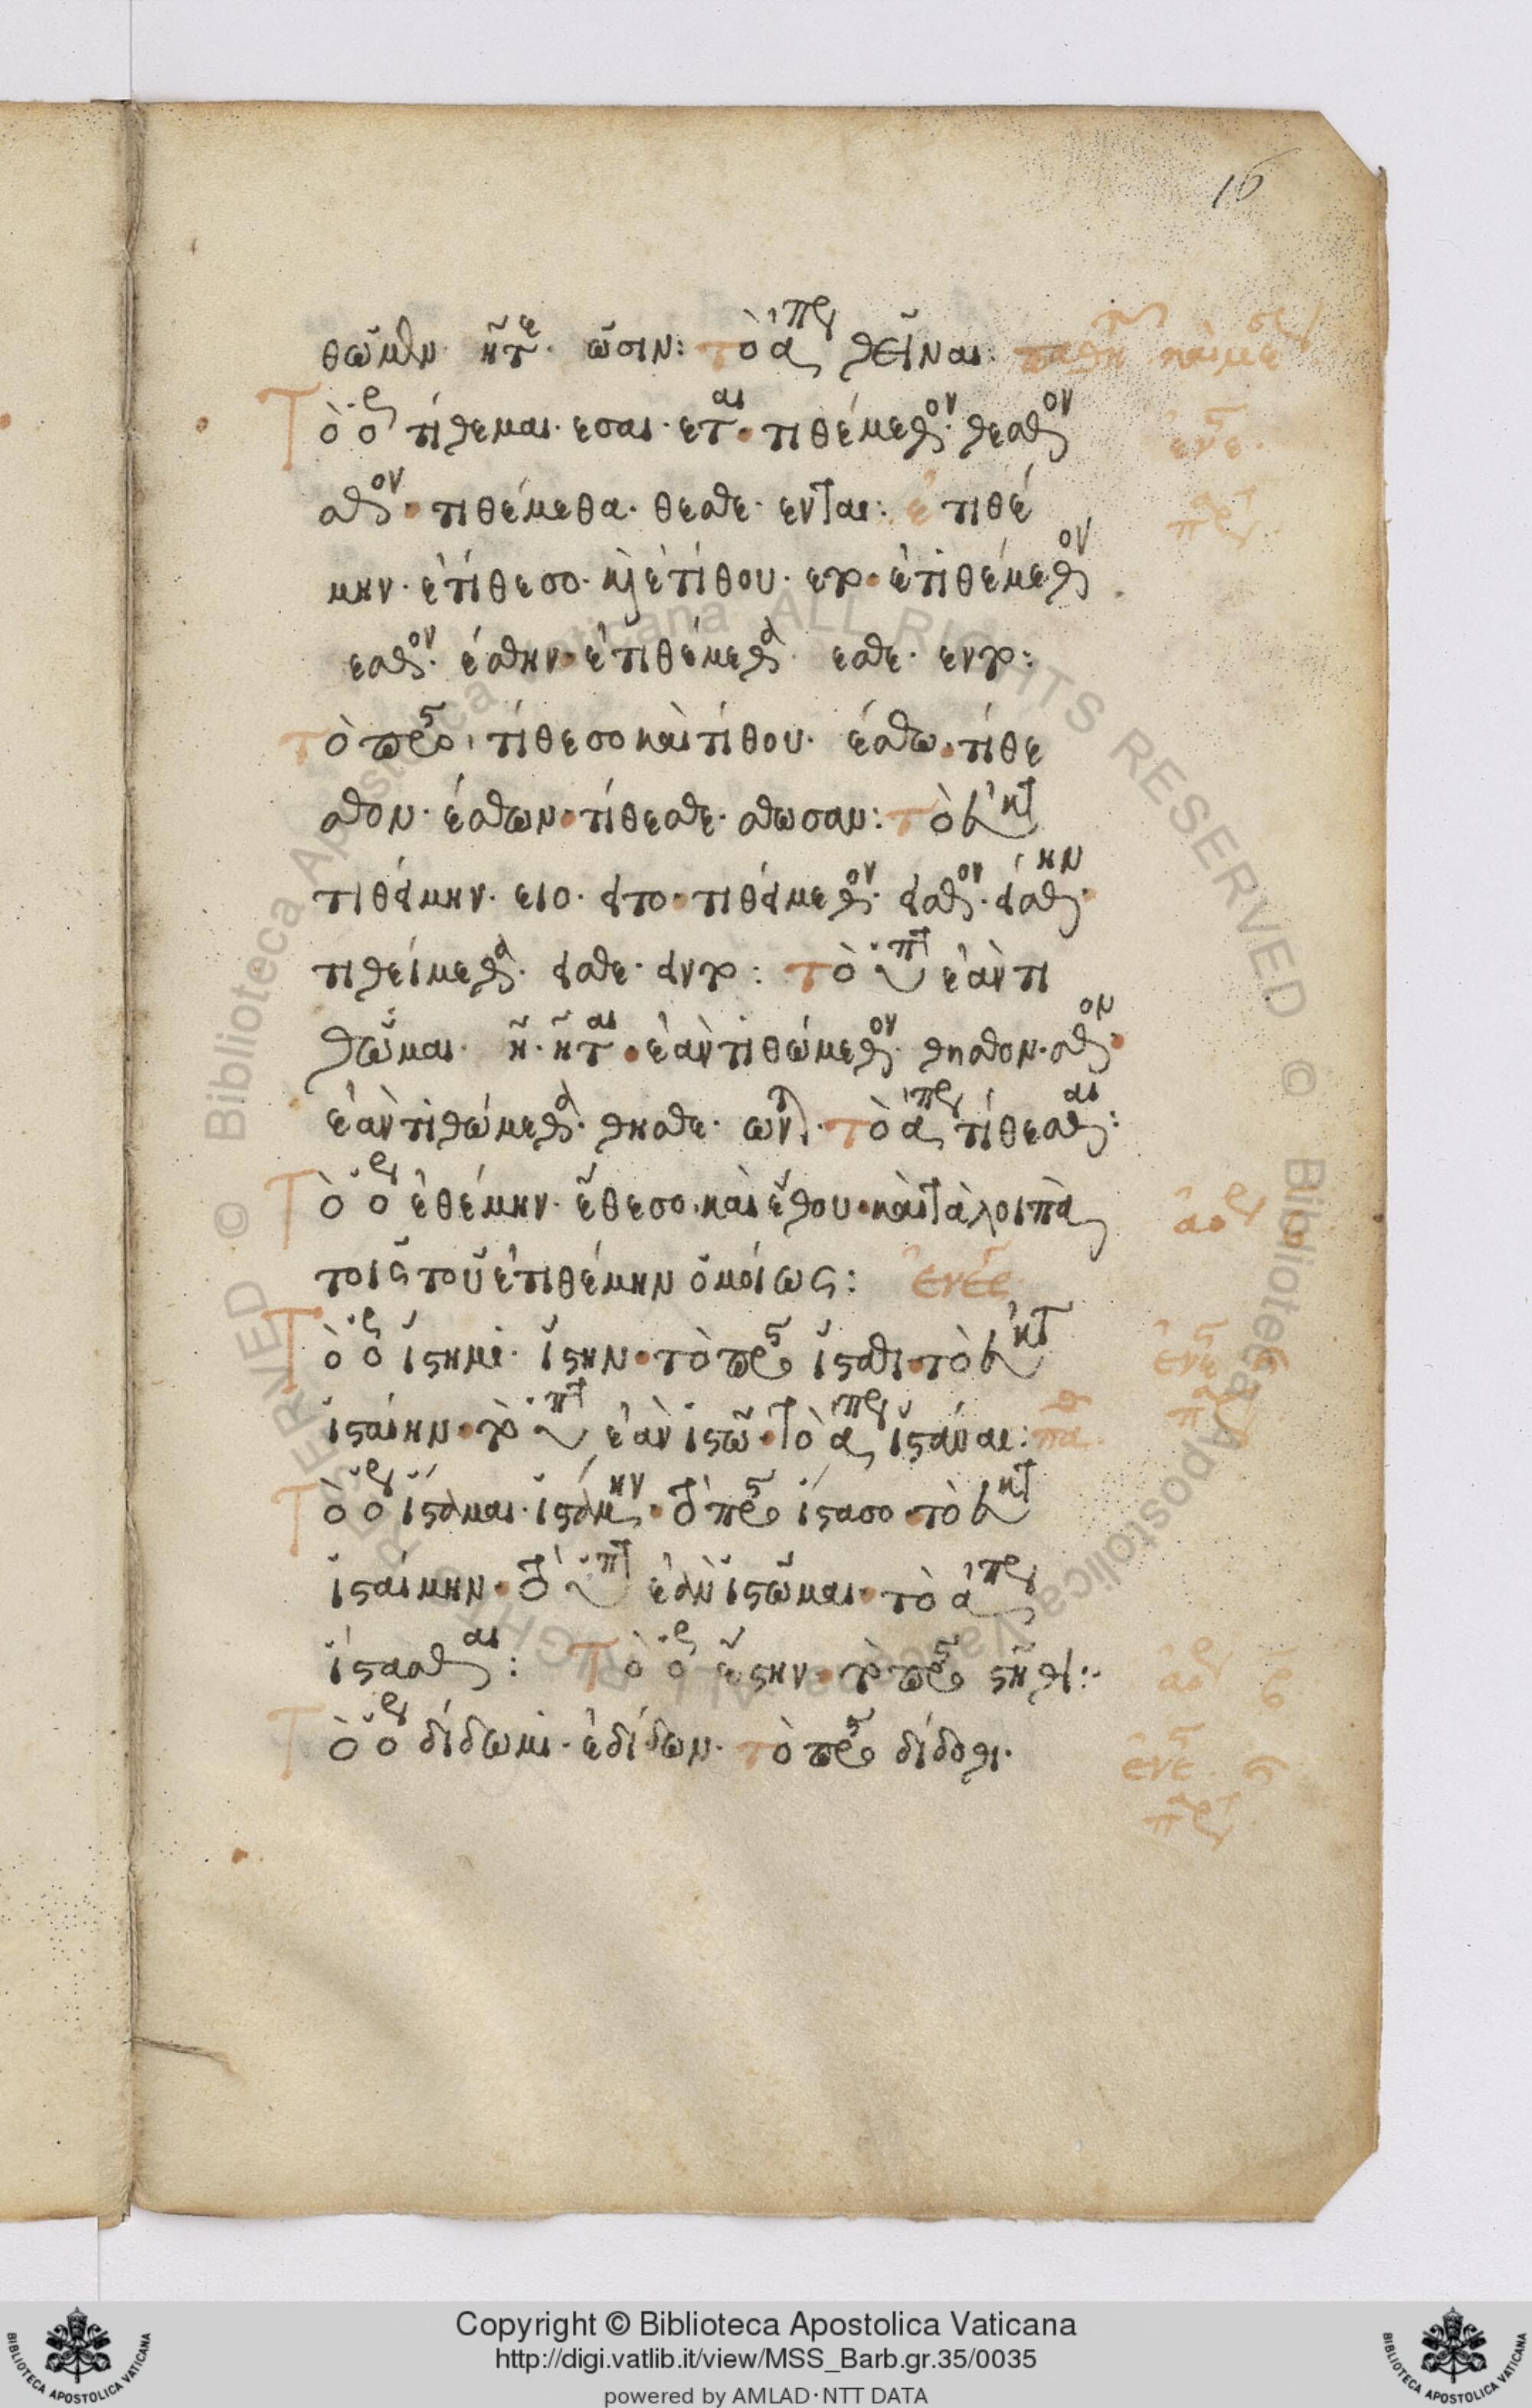 16
θῶμεν· ῆτε· ῶσιν: τὸ ἀπρ θεῖναι: παθη καὶ με
Τὸ ὁρ τίθεμαι· εσαι· εται· τιθέμεθον· θεσθον
σθον· τιθέμεθα· θεσθε· ενται: ἐτιθέ
μην· ἐτίθεσο· κὶ ἐτίθου· ετο· ἐτιθέμεθον
εσθον· έσθην· ἐτιθέμεθα· εσθε· εντο:
τὸ προς τίθεσο καὶ τίθου· έσθω· τίθε
σθον· έσθων· τίθεσθε· σθωσαν: τὸ εὐκτ
τιθείμην· ειο· ειτο· τιθείμεθον· εισθον· είσθην·
τιθείμεθα· εισθε· ειντο: τὸ ὑπτ ἐὰν τι
θῶμαι· ῆ· ῆται· ἐὰν τιθώμεθον· θησθον· σθον·
ἐὰν τιθώμεθα· θησθε· ωνται· τὸ ἀπρ τίθεσθαι:
Τὸ ὁρ ἐθέμην· ἔθεσο· καὶ ἔθου· καὶ τὰ λοιπὰ αορ
τοῖς τοῦ ἐτιθέμην ὁμοίως: ἐνερ
Τὸ ὁρ ἵστημι· ἵστην· τὸ προς ἵσταθι· τὸ εὐκτ ἐνες
ἱσταίην· τὸ ὑπτ ἐὰν ἱστῶ· τὸ ἀπρ ἱστάναι: παθ
Τὸ ὁρ ἵσταμαι· ἱστάμην· τὸ προς ἵστασο· τὸ εὐκτ
ἱσταίμην· τὸ ὑπτ ἐὰν ἱστῶμαι· τὸ ἀπρ
ἵστασθαι: Τὸ ὁρ ἔστην· τὸ προς στῆθι: αορ β
Τὸ ὁρ δίδωμι· ἐδίδων· τὸ προς δίδοθι· ἐνες
Copyright © Biblioteca Apostolica Vaticana
http://digi.vatlib.it/view/MSS_Barb.gr.35/0035
powered by AMLAD·NTT DATA
BIBLIOTECA APOSTOLICA VATICANA
BIBLIOTECA APOSTOLICA VATICANA